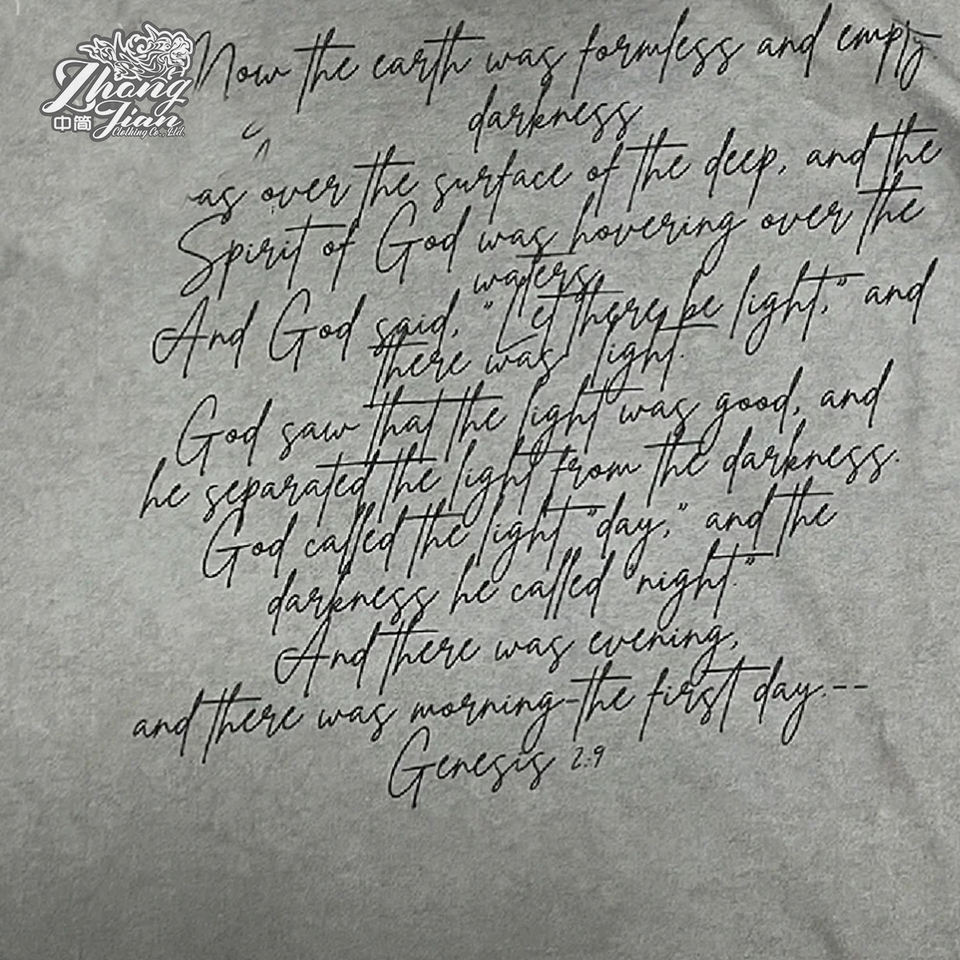 Zhong
Jian
中简
Clothing Co., Ltd.
Now the earth was formless and empty
darkness
as over the surface of the deep, and the
Spirit of God was hovering over the
waters.
And God said, "Let there be light," and
there was light.
God saw that the light was good, and
he separated the light from the darkness.
God called the light "day," and the
darkness he called "night."
And there was evening,
and there was morning-the first day.--
Genesis 2:9